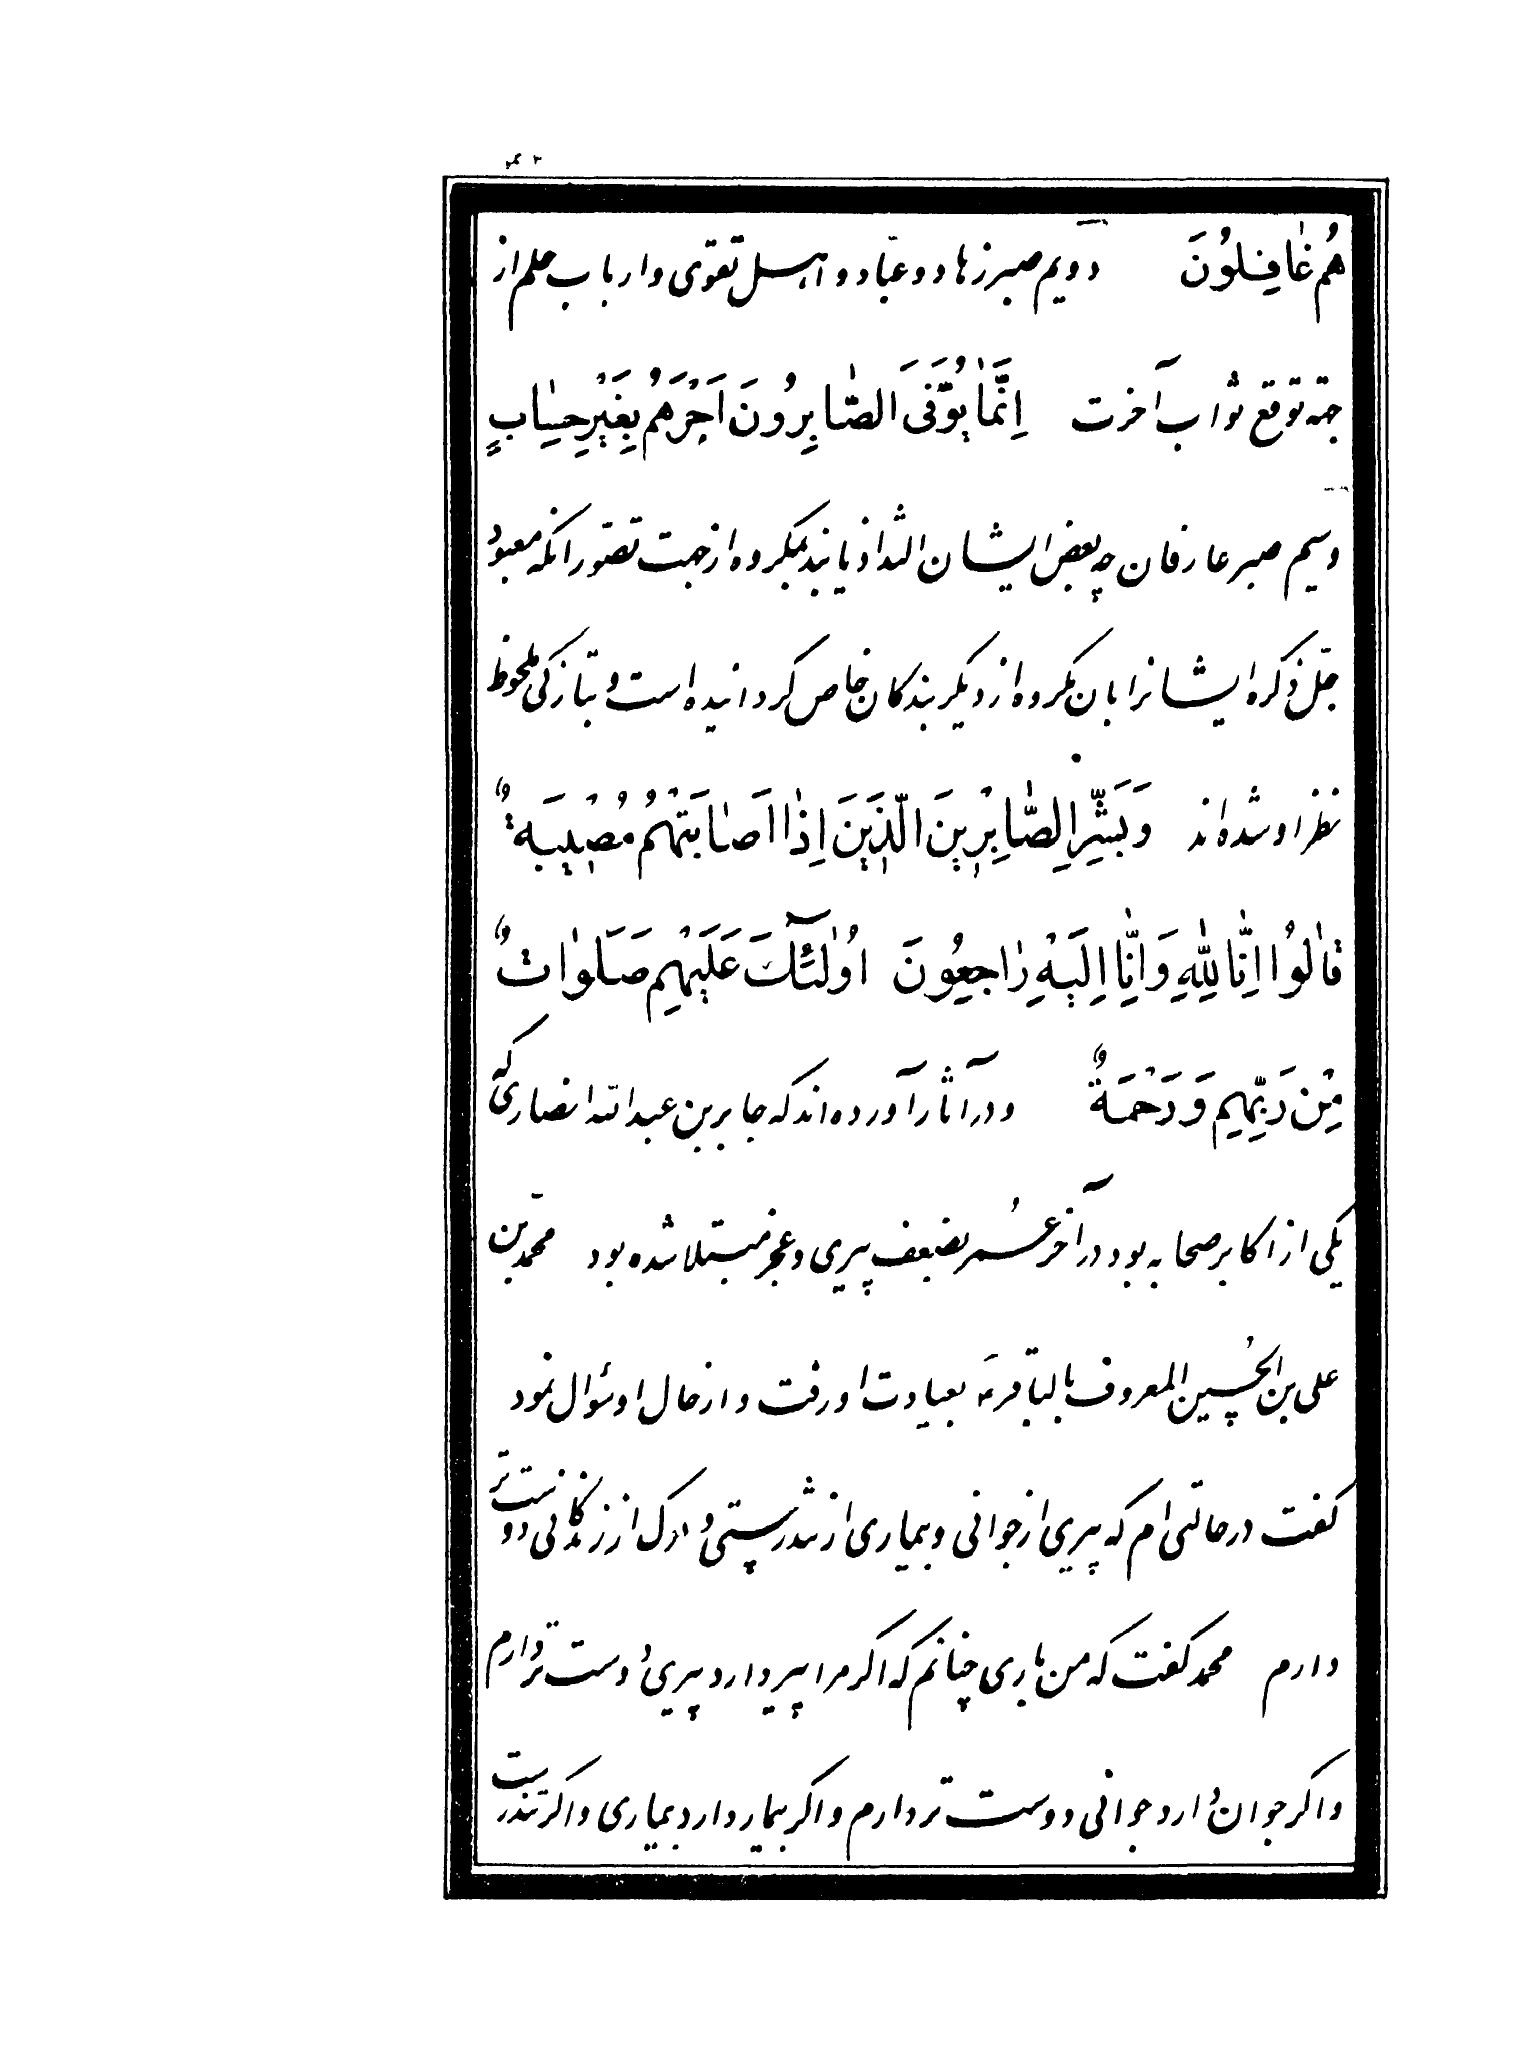 هُم غافِلُونَ دویم صبر زهاد و عبّاد و اهل تقوی و ارباب حلم از
جهة توقع ثواب آخرت اِنَّمٰا یُوَّفیَ الصّٰابِرُونَ اَجْرَهُم بِغَیْرِ حِسٰابٍ
وسیم صبر عارفان چه بعض ایشان التذاذ یابند بمکروه از جهت تصّور انکه معبود
جلّ ذکره ایشانرا بان مکروه از دیکر بندکان خاص کردانیده است و بتازکی ملحوظ
نظر او شده‌اند وَ بَشِّرِ الصّٰابِرِینَ الَّذَینَ اِذٰا اَصٰابَتْهُمْ مُصْیبَةٌ
قٰالُوُا اِنّٰا لِلّٰهِ وَ اِنّٰا اِلَیْهِ رٰاجِعُونَ اُولٰئِکَ عَلَیْهِم صَلَوٰاتٌ
مِنْ رَبِّهِم وَ رَحْمَةٌ و در آثار آورده‌اند که جابر بن عبدالله انصاری که
یکی از اکابر صحابه بود در آخر عُمر بضعف پیری و عجز مبتلا شده بود محمّد بن
علی بن الحُسین المعروف بالباقر عه بعیادت او رفت و از حال او سؤال نمود
کفت در حالتی‌ام که پیری از جوانی و بیماری از تندرستی و مرک از زندکانی دوست تر
دارم محمد کفت که من باری چنانم که اکر مرا پیر دارد پیری دوست تر دارم
و اکر جوان دارد جوانی دوست تر دارم و اکر بیمار دارد بیماری و اکر تندرست